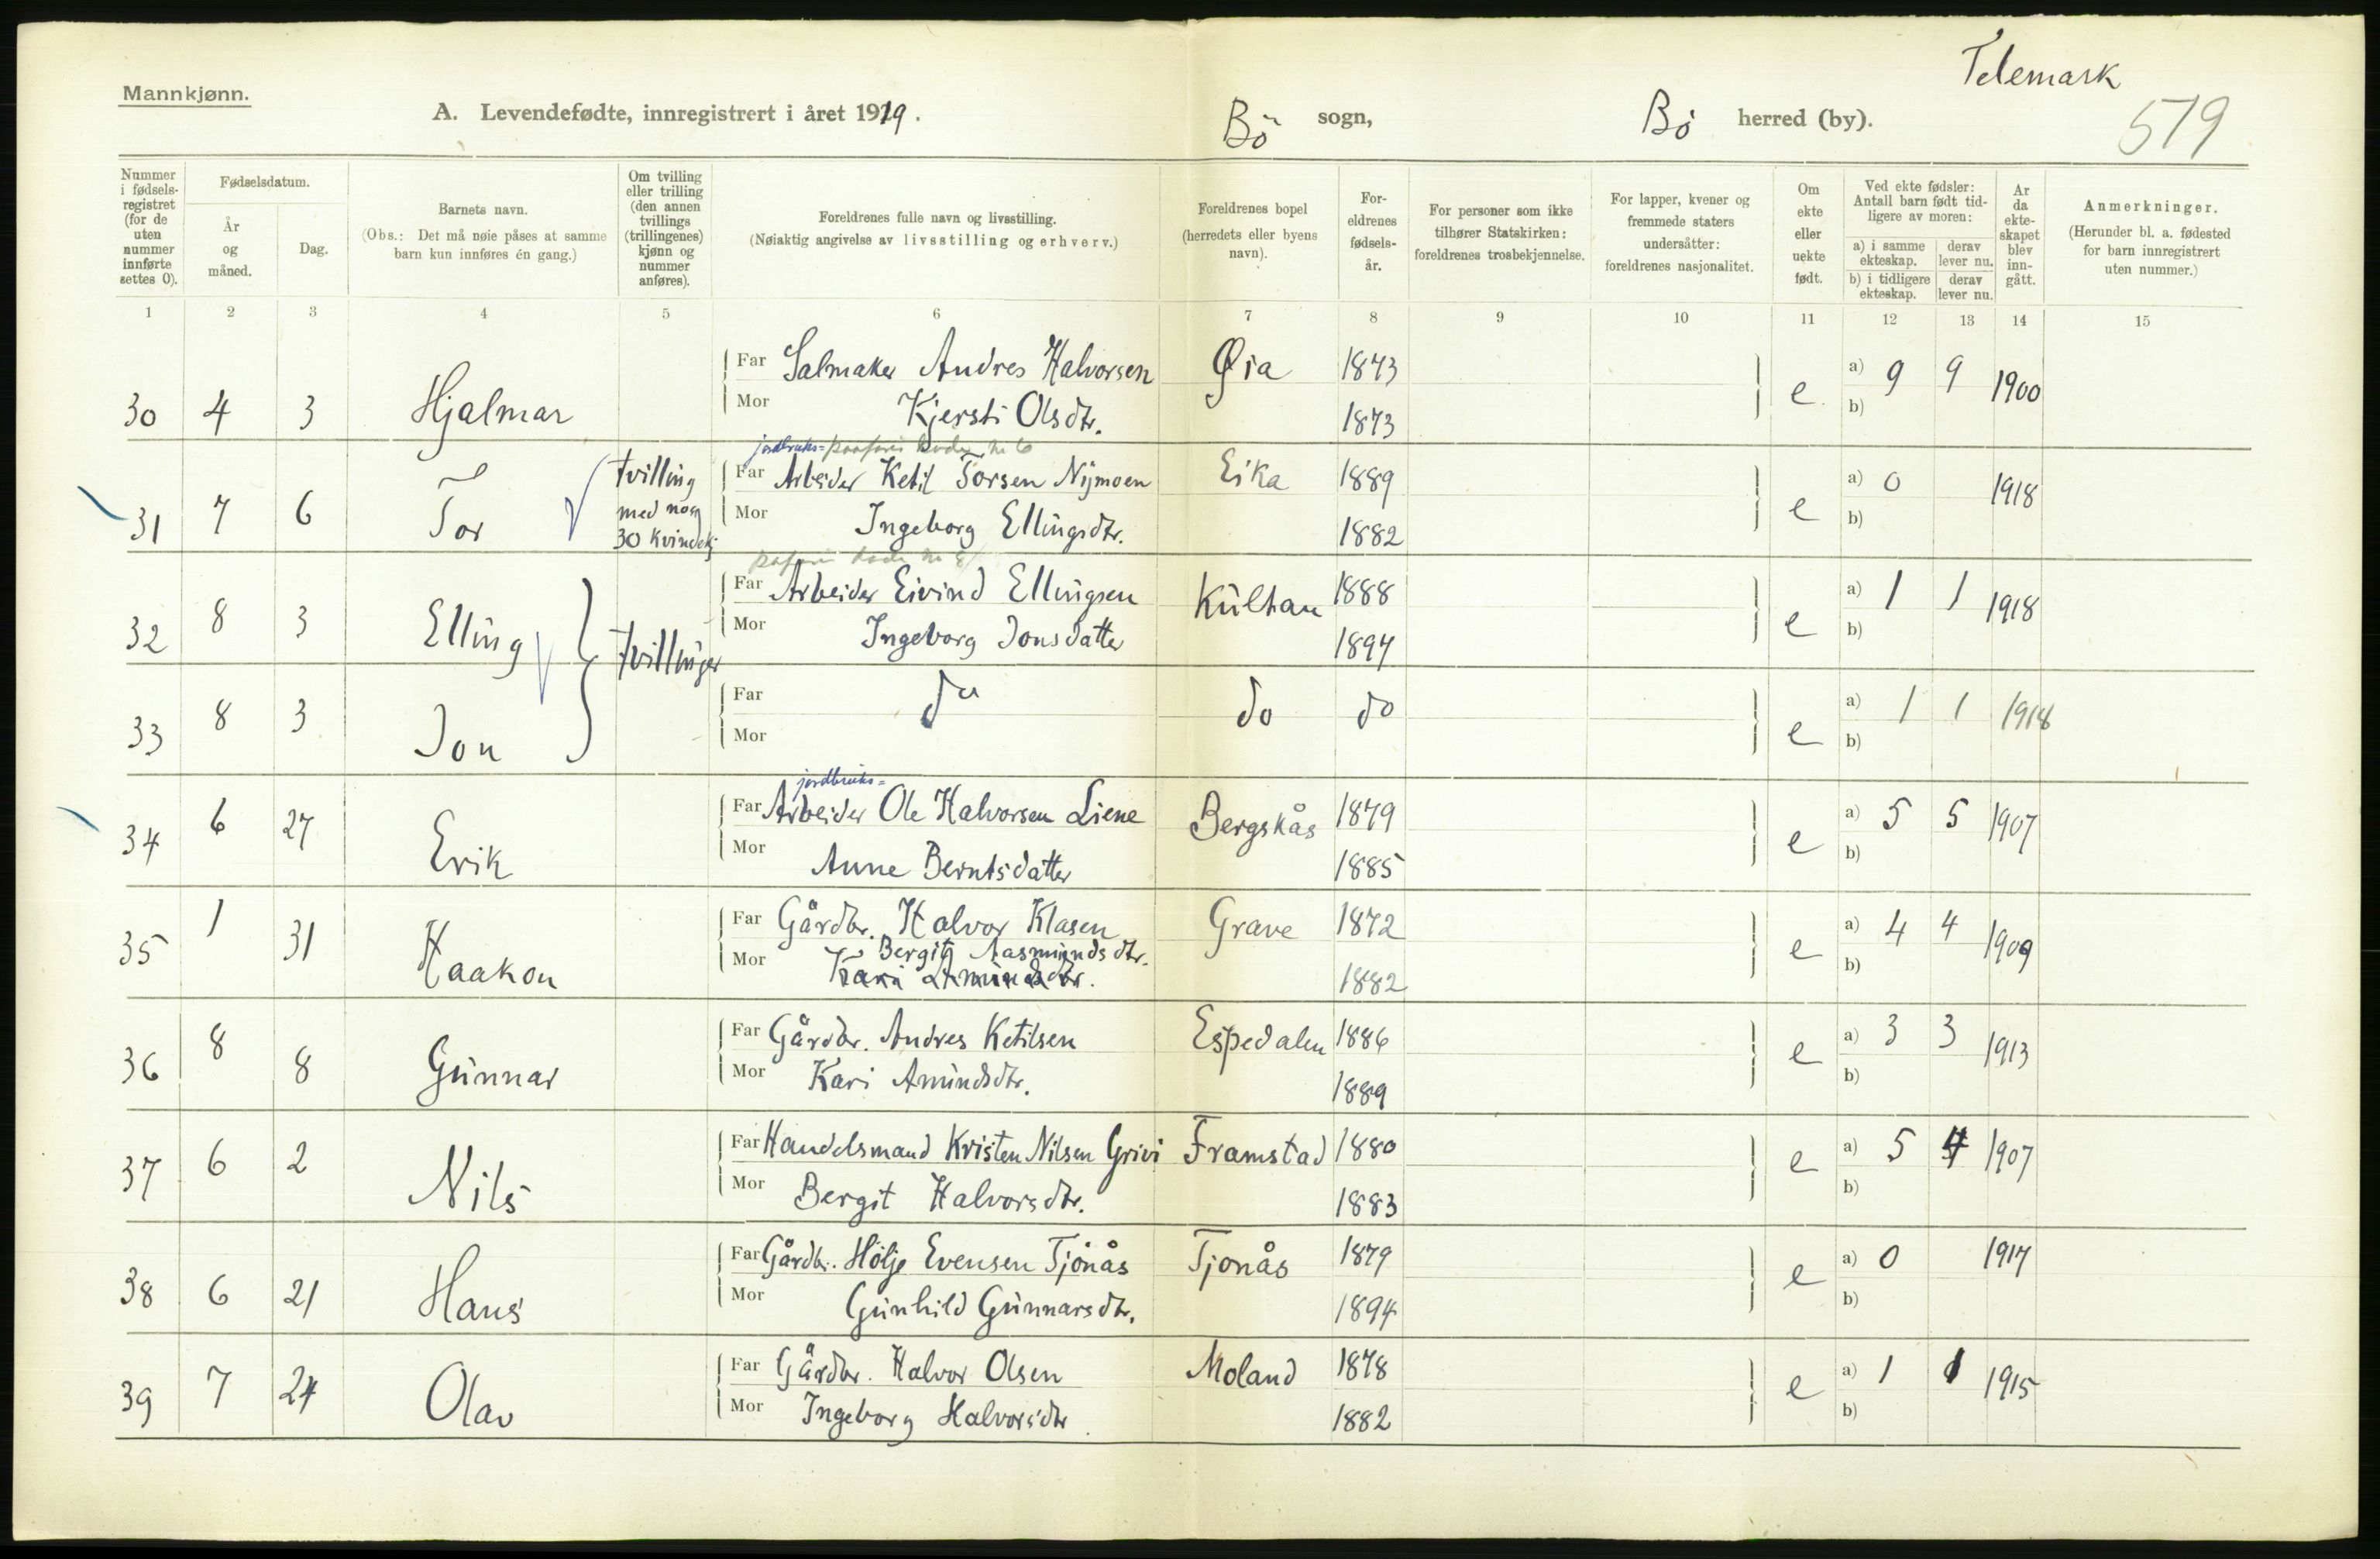 Telemark
Mannkjønn.
A. Levendefødte, innregistrert i året 1919. Bö sogn, Bö herred (by). 579
Nummer i fødsels-registret (for de uten nummer innførte settes 0).
Fødselsdatum.
År og måned.
Dag.
Barnets navn.
(Obs.: Det må nøie påses at samme barn kun innføres én gang.)
Om tvilling eller trilling (den annen tvillings (trillingenes) kjønn og nummer anføres).
Foreldrenes fulle navn og livsstilling.
(Nøiaktig angivelse av livsstilling og erhverv.)
Foreldrenes bopel (herredets eller byens navn).
For-eldrenes fødsels-år.
For personer som ikke tilhører Statskirken: foreldrenes trosbekjennelse.
For lapper, kvener og fremmede staters undersåtter: foreldrenes nasjonalitet.
Om ekte eller uekte født.
Ved ekte fødsler: Antall barn født tid-ligere av moren:
a) i samme ekteskap. derav lever nu.
b) i tidligere ekteskap. derav lever nu.
Ar da ekte-skapet blev inn-gått.
Anmerkninger.
(Herunder bl. a. fødested for barn innregistrert uten nummer.)
1 2 3 4 5 6 7 8 9 10 11 12 13 14 15
Far Salmaker Andres Halvorsen Øia 1873 a) 9 9 1900
30 4 3 Hjalmar Mor Kjersti Olsdtr. 1873 e b)
jordbruks=
31 7 6 Tor tvilling med no 30 Kvindekj
Far Arbeider Ketil Torsen Nymoen Eika 1889 e a) 0 1918
Mor Ingeborg Ellingsdtr. 1882 b)
32 8 3 Elling tvillinger
Far Arbeider Eivind Ellingsen Kulhau 1888 e a) 1 1 1918
Mor Ingeborg Jonsdatter 1897 b)
33 8 3 Jon Far do do do e a) 1 1 1918
Mor b)
jordbruks=
34 6 27 Erik
Far Arbeider Ole Halvorsen Liene Bergskås 1879 e a) 5 5 1907
Mor Anne Berntsdatter 1885 b)
35 1 31 Haakon
Far Gårdbr. Halvor Klasen Grave 1872 e a) 4 4 1909
Bergit Aasmundsdtr.
Mor Kari Amundsdtr. 1882 b)
36 8 8 Gunnar
Far Gårdbr. Andres Ketilsen Espedalen 1886 e a) 3 3 1913
Mor Kari Amundsdtr. 1889 b)
37 6 2 Nils
Far Handelsmand Kristen Nilsen Grivi Framstad 1880 e a) 5 4 1907
Mor Bergit Halvorsdtr. 1883 b)
38 6 21 Hans
Far Gårdbr. Hölje Evensen Tjönås Tjonås 1879 e a) 0 1917
Mor Gunhild Gunnarsdtr. 1894 b)
39 7 24 Olav
Far Gårdbr. Halvor Olsen Moland 1878 e a) 1 1 1915
Mor Ingeborg Halvorsdtr 1882 b)